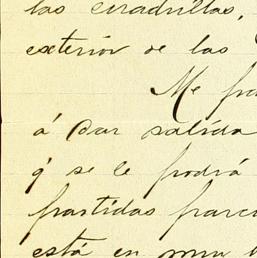 las cuadrillas,
exterior de las
Me
á dar salida
q' se le podrá
partidas parci
está en muy